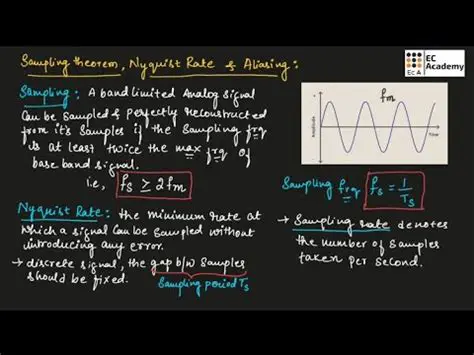 Sampling theorem, Nyquist Rate & Aliasing :
EC
Academy
EcA
Sampling : A band limited Analog signal
Can be sampled & perfectly reconstructed
from it's samples if the sampling frq
is at least twice the max frq of
base band signal.
i.e, fs ≥ 2fm
Nyquist Rate : the minimum rate at
which a signal can be sampled without
introducing any error.
→ discrete signal, the gap b/w samples
should be fixed.
Sampling period Ts
fm
Amplitude
Time
Sampling frq fs = 1/Ts
→ Sampling rate denotes
the number of samples
taken per second.